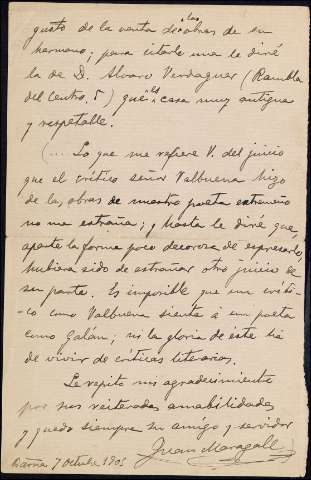 gusto de la venta de las obras de su
hermano; para citarle una le diré
la de D. Alvaro Verdaguer (Rambla
del Centro, 5) que es casa muy antigua
y respetable.
(.... Lo que me refiere V. del juicio
que el crítico señor Valbuena hizo
de las obras de nuestro poeta extremeño
no me extraña; y hasta le diré que,
aparte la forma poco decorosa de expresarlo,
hubiera sido de extrañar otro juicio de
su parte. Es imposible que un críti-
-co como Valbuena sienta á un poeta
como Galán; ni la gloria de éste ha
de vivir de críticas literarias.
Le repito mi agradecimiento
por sus reiteradas amabilidades
y quedo siempre su amigo y servidor
Juan Maragall
Barna 7 Octubre 1905